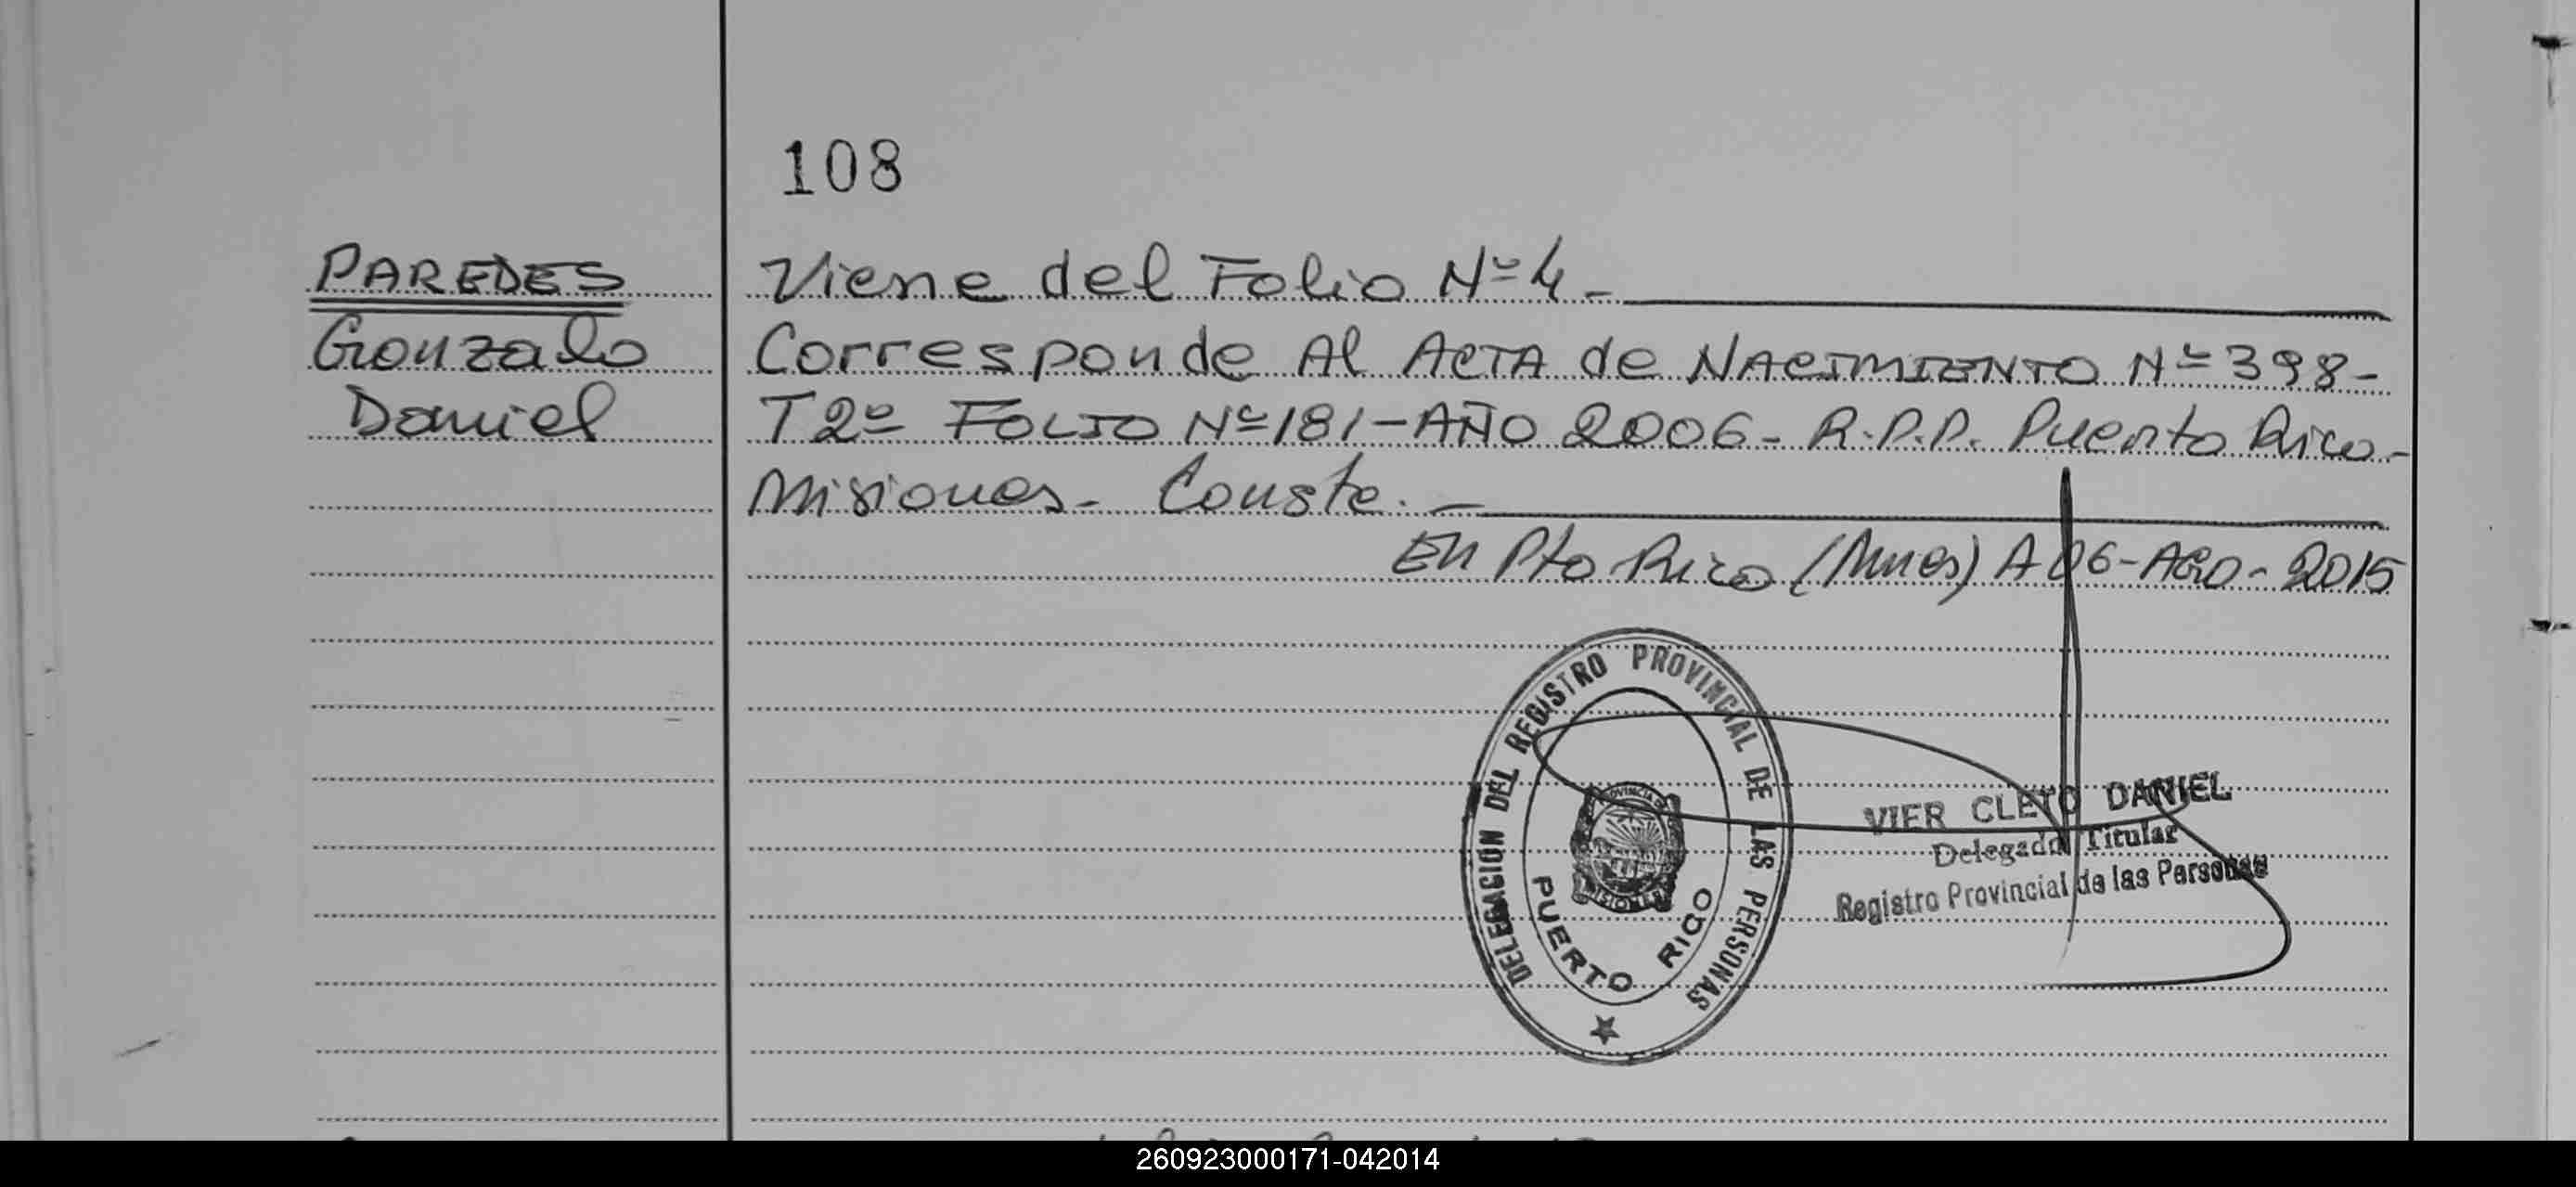 108
PAREDES
Gonzalo
Daniel
Viene del Folio Nº 4 -
Corresponde Al ActA de NAcIMIENTO Nº 398 -
T 2º FOLIO Nº 181 - AÑO 2006 - R.P.P. Puerto Rico -
Misiones - Conste. -
En Pto Rico (Mnes) A 06 - AGO - 2015
DELEGACION DEL REGISTRO PROVINCIAL DE LAS PERSONAS
PROVINCIA DE
MISIONES
PUERTO RICO
VIER CLETO DANIEL
Delegado Titular
Registro Provincial de las Personas
260923000171-042014